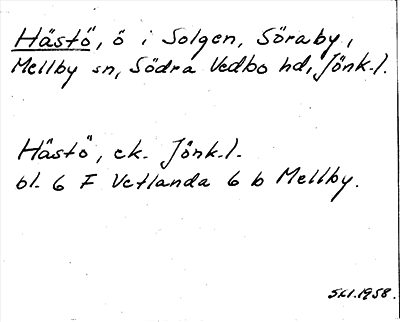 Hästö, ö i Solgen, Söraby,
Mellby sn, Södra Vedbo hd, Jönk.l.
Hästö, ek. Jönk.l.
bl. 6 F Vetlanda 6 b Mellby.
SLl.1958.